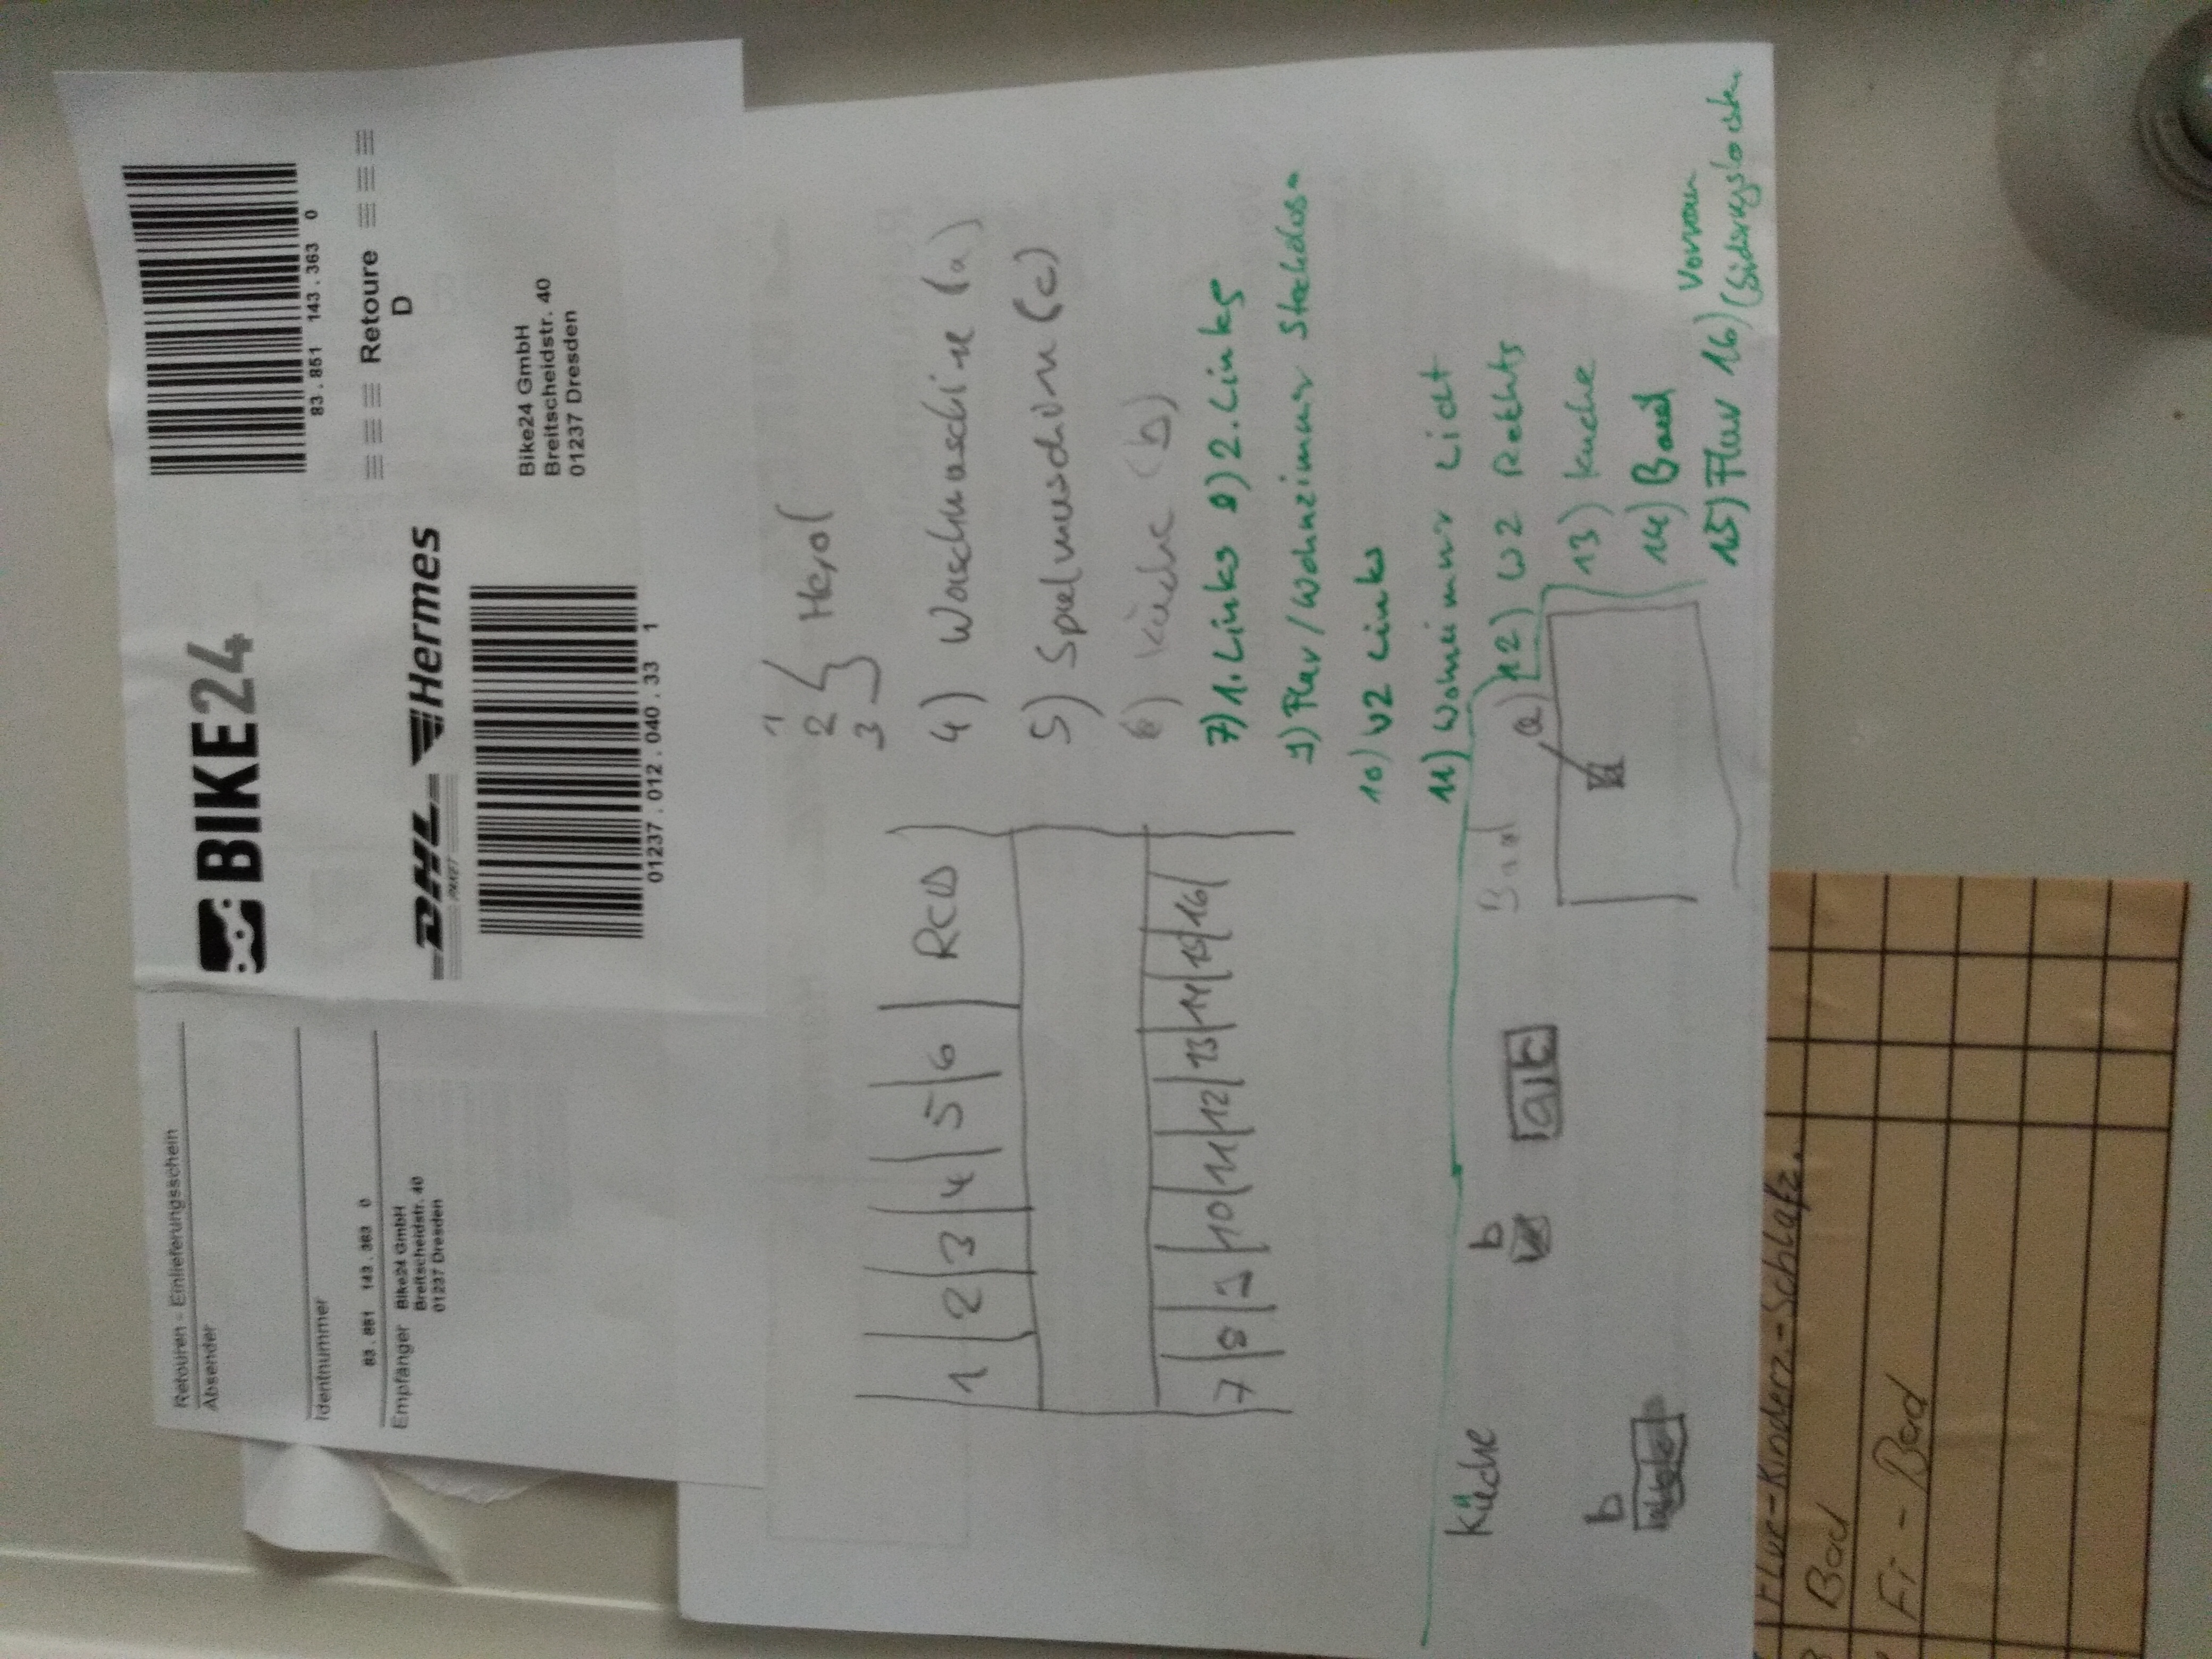 Retouren - Einlieferungsschein
Absender
Identnummer
83.851 143.363 0
Empfänger Bike24 GmbH
Breitscheidstr. 40
01237 Dresden
BIKE24
DHL
PAKET
Hermes
01237.012.040.33 1
83.851 143.363 0
Retoure
D
Bike24 GmbH
Breitscheidstr. 40
01237 Dresden
1 2 3 4 5 6 RCD
7 8 9 10 11 12 13 14 15 16
1
2 Herd
3
4) Waschmaschine (a)
5) Spulmuschin (c)
6) Küche (b)
7) 1. Links 8) 2. Links
9) Flur/Wohnzimmer Steckdose
10) V2 Links
11) Wohnzimmer Licht
12) W2 Rechts
13) Kuche
14) Bad
15) Flur 16) Vorraum
(Sicherungskasten
Küche
b
a c
b
Bad
a)
Flur-Kinderz.-Schlafz.
Bad
Fi - Bad